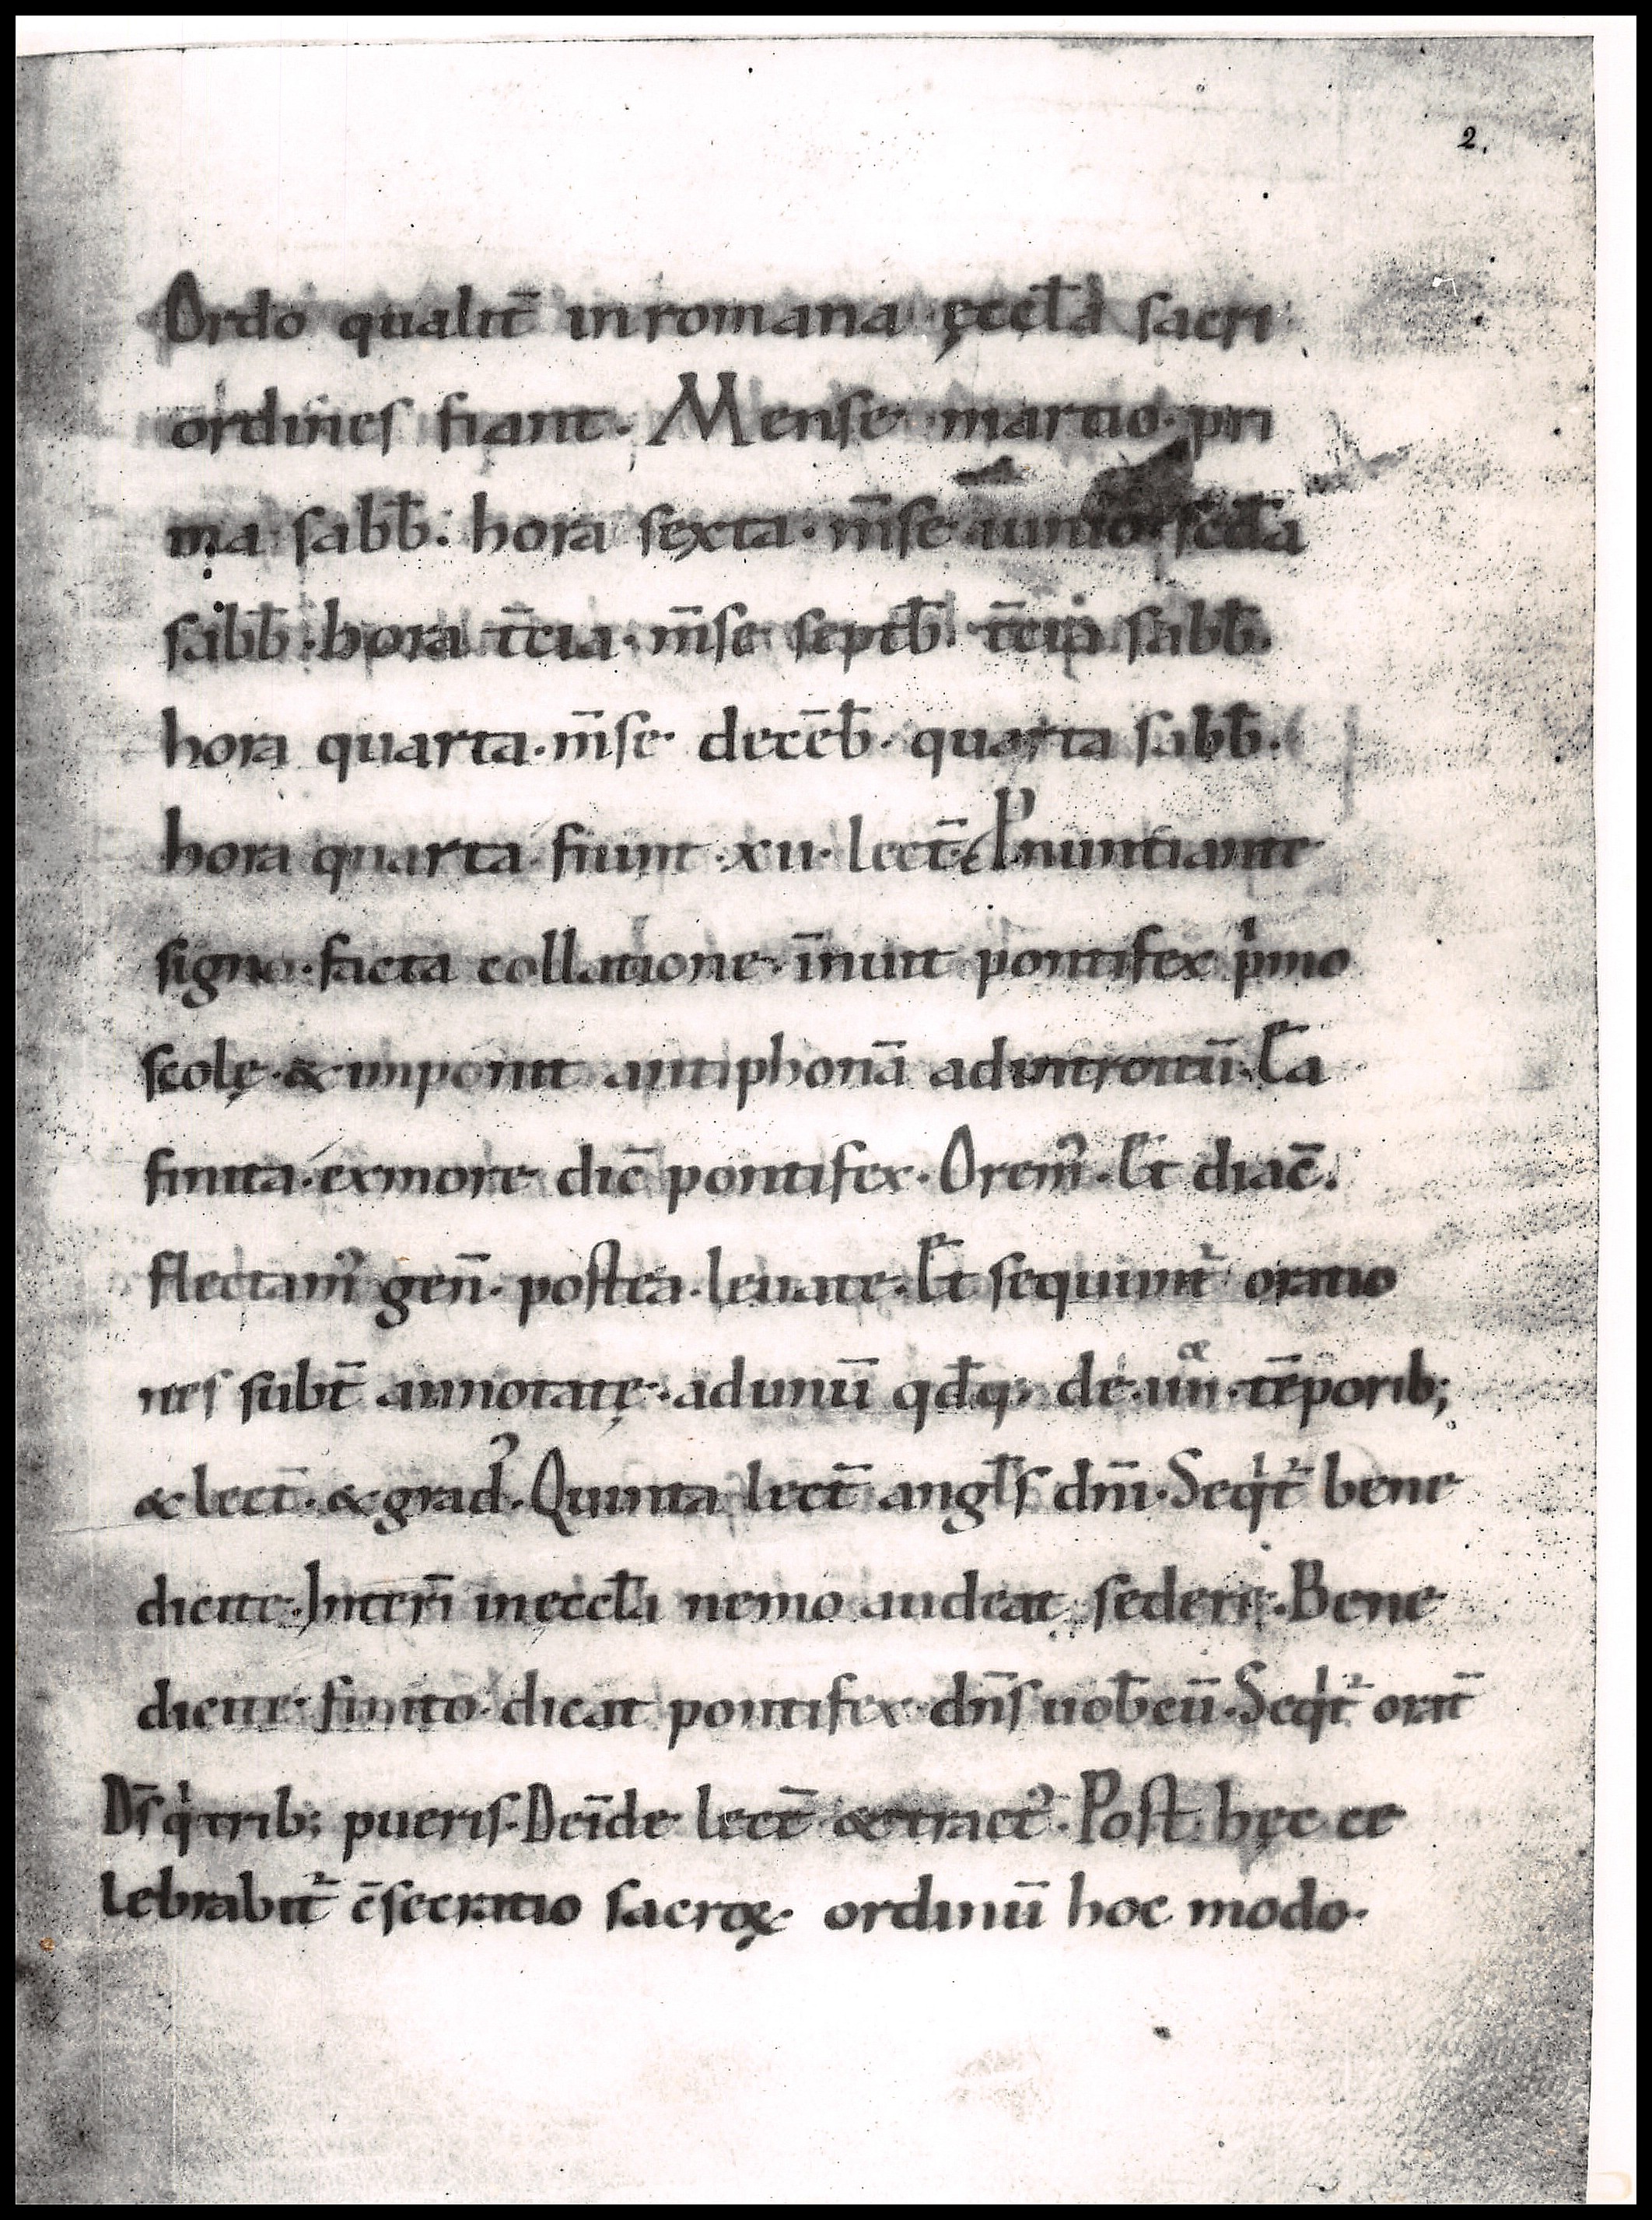 2.
Ordo qualit̄ in romana ęccl̄a sacri
ordines fiant. Mense martio. pri
ma sabb̄. hora sexta. m̄se iunio. secd̄a
sabb̄. hora t̄cia. m̄se septb̄. t̄cia sabb̄.
hora quarta. m̄se decēb̄. quarta sabb̄.
hora quarta fiunt .xii. lect̄. Pnuntiante
signo. facta collatione. īnuit pontifex pͥmo
scolę. & imponit antiphonā ad introitū. Ea
finita. ex more dic̄ pontifex. Orem᾽. Et diac̄.
flectam᾽ gen̄. postea. leuate. Et sequunt᾽ oratio
nes subt̄ annotatę. ad unū qd̄q; de .iiii. tēporib;
& lect̄. & grad᾽. Quinta lect̄ angl̄s dn̄i. Seqͥt᾽ bene
dicite. Interī in ęccl̄a nemo audeat sedere. Bene
dicite finito. dicat pontifex. dn̄s uob̄cū. Seqͥt᾽ orat̄
Ds̄ qͥ trib; pueris. Deīde lect̄ & tract᾽. Post hęc ce
lebrabit᾽ c̄secratio sacroꝝ ordinū hoc modo.